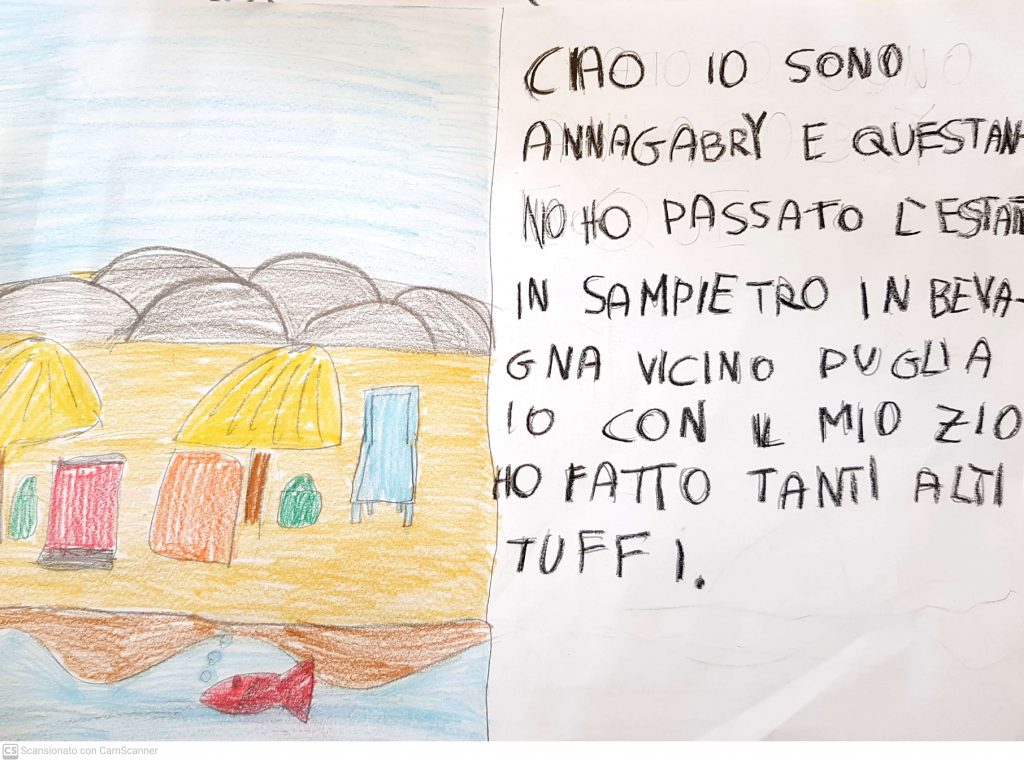 CIAO IO SONO
ANNAGABRY E QUESTAN-
NO HO PASSATO L'ESTATE
IN SAMPIETRO IN BEVA-
GNA VICINO PUGLIA
IO CON IL MIO ZIO
HO FATTO TANTI ALTI
TUFFI.
CS Scansionato con CamScanner